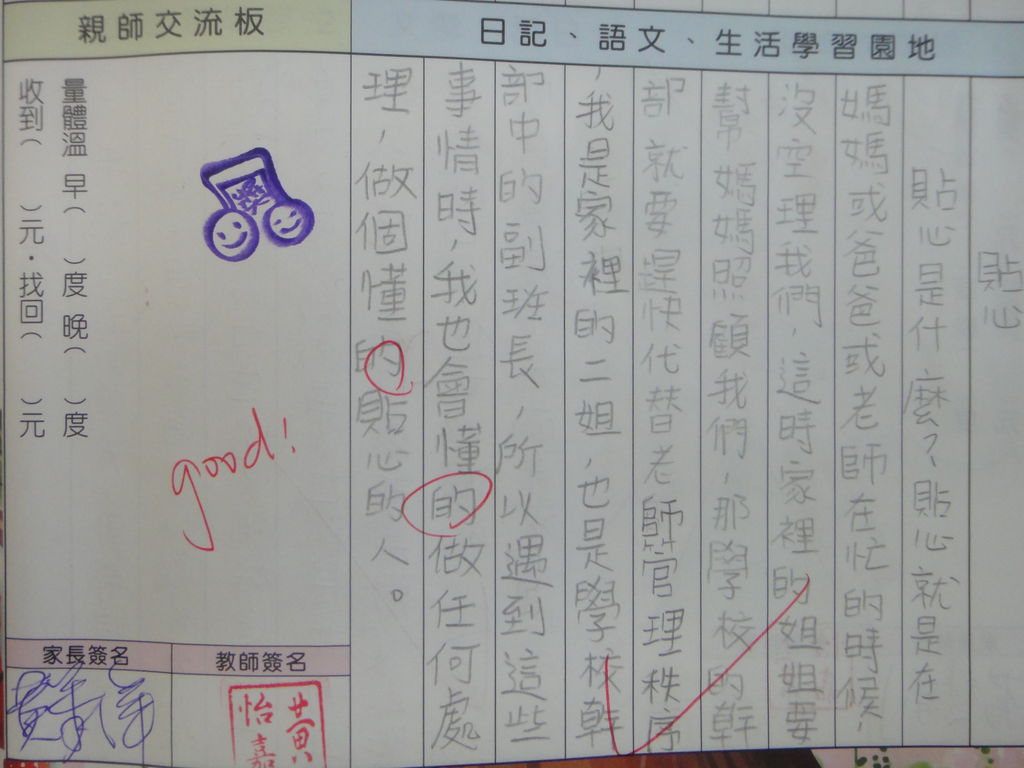 日記、語文、生活學習園地
貼心
貼心是什麼？貼心就是在
媽媽或爸爸或老師在忙的時候
沒空理我們，這時家裡的姐姐要
幫媽媽照顧我們，那學校的幹
部就要趕快代替老師管理秩序
，我是家裡的二姐，也是學校幹
部中的副班長，所以遇到這些
事情時，我也會懂的做任何處
理，做個懂的貼心的人。
親師交流板
量體溫 早（ ）度 晚（ ）度
收到（ ）元·找回（ ）元
獎
good!
家長簽名
教師簽名
黃
怡嘉